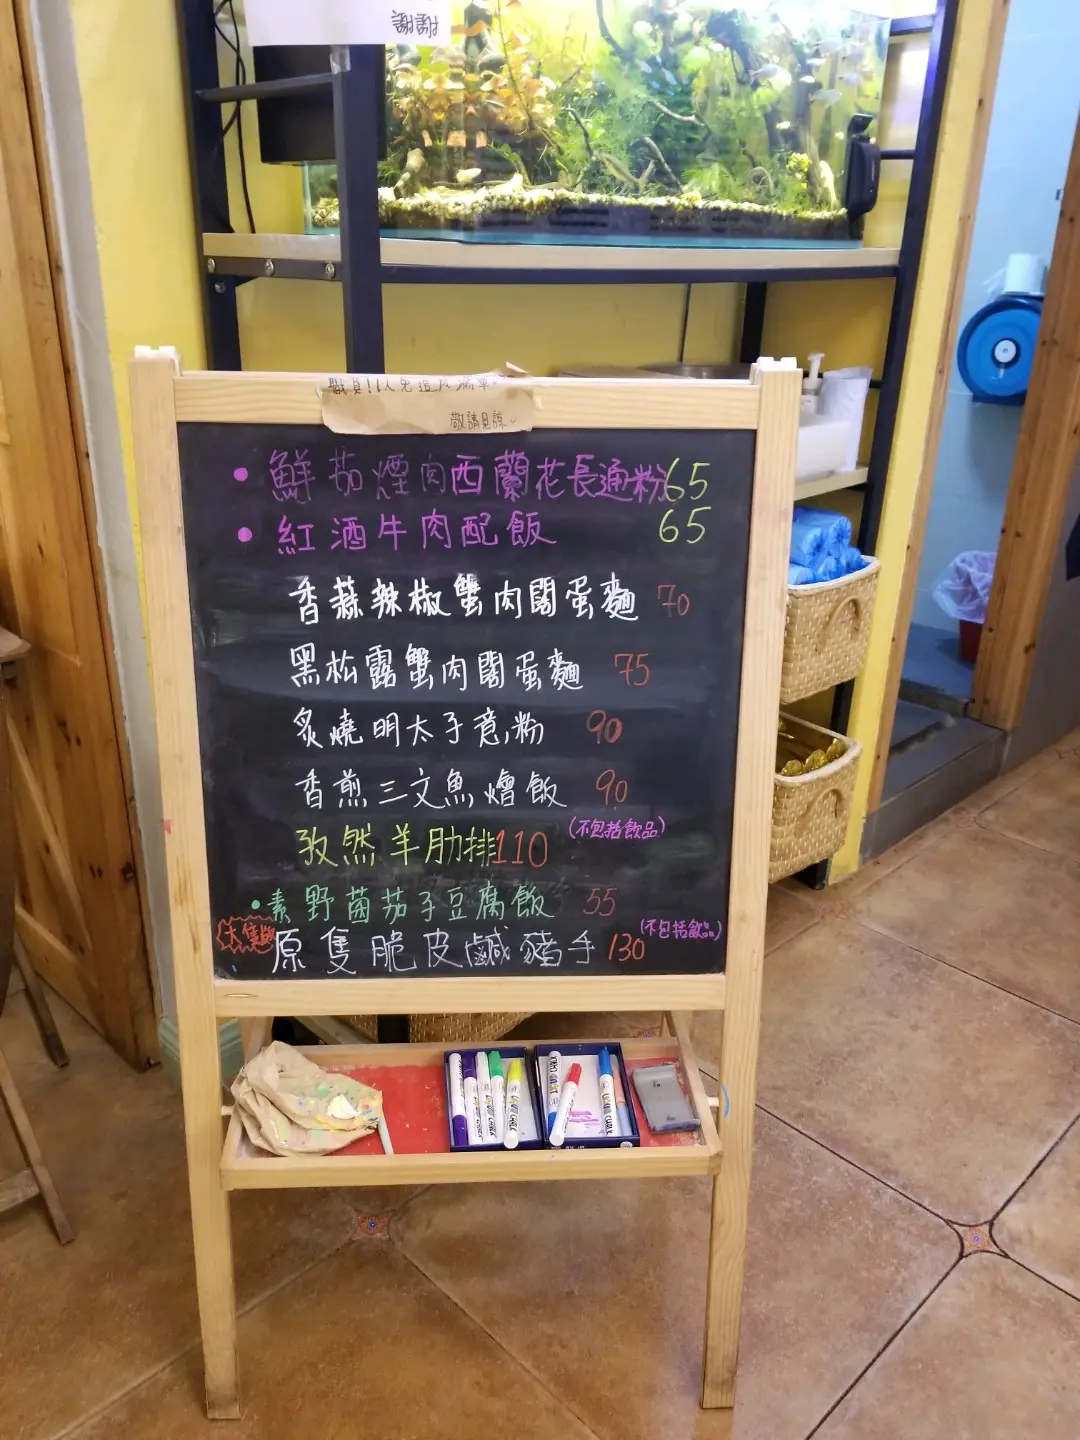 謝謝
敬請見諒
• 鮮茄煙肉西蘭花長通粉 65
• 紅酒牛肉配飯 65
香蒜辣椒蟹肉闊蛋麵 70
黑松露蟹肉闊蛋麵 75
炙燒明太子意粉 90
香煎三文魚燴飯 90
孜然羊肋排 110 (不包括飲品)
• 素野菌茄子豆腐飯 55
大隻 原隻脆皮鹹豬手 130 (不包括飲品)